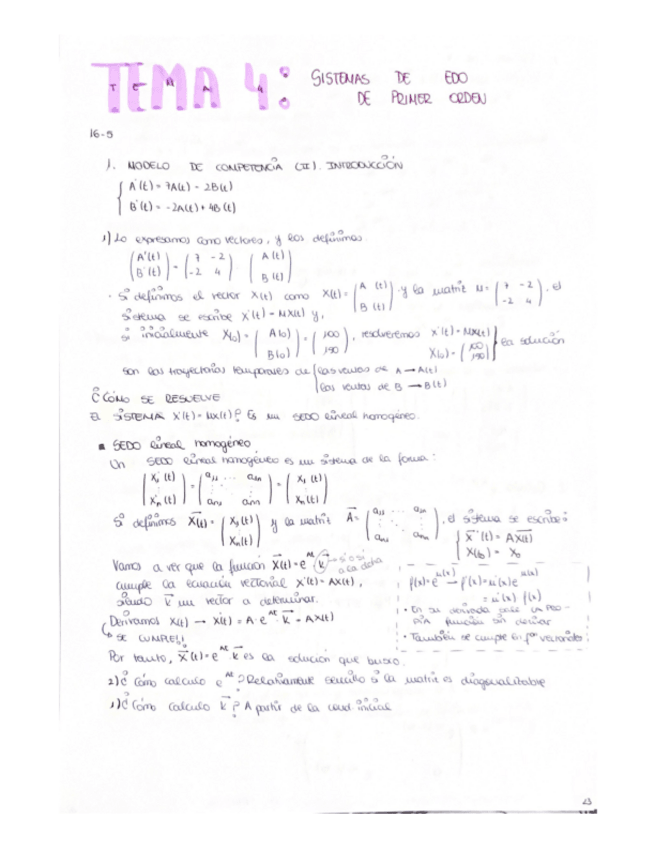 TEMA 4: SISTEMAS DE EDO
DE PRIMER ORDEN
16-5
1. MODELO DE COMPETENCIA (II). INTRODUCCIÓN
A'(t) = 7A(t) - 2B(t)
B'(t) = -2A(t) + 4B(t)
1) Lo expresamos como vectores, y los definimos
(A'(t) B'(t)) = (7 -2 -2 4) (A(t) B(t))
· Si definimos el vector X(t) como X(t) = (A(t) B(t)) y la matriz M = (7 -2 -2 4), el
sistema se escribe X'(t) = MX(t) y,
si inicialmente X(0) = (A(0) B(0)) = (100 190), resolveremos X'(t) = MX(t) X(0) = (100 190) la solución
son las trayectorias temporales de las ventas de A → A(t)
las ventas de B → B(t)
¿CÓMO SE RESUELVE
EL SISTEMA X'(t) = MX(t)? Es un SEDO lineal homogéneo.
▪ SEDO lineal homogéneo
Un SEDO lineal homogéneo es un sistema de la forma:
(X1'(t) Xn'(t)) = (a11 ... a1n an1 ann) = (X1(t) Xn(t))
Si definimos X(t) = (X1(t) Xn(t)) y la matriz A = (a11 ... a1n an1 ann), el sistema se escribe:
X'(t) = AX(t)
X(t0) = X0
Vamos a ver que la función X(t) = e^At k → si o si a la dcha
cumple la ecuación vectorial X'(t) = AX(t),
siendo k un vector a determinar.
f(x) = e^u(x) → f'(x) = u'(x) e^u(x)
= u'(x) f(x)
· En su derivada sale LA PRO-
PIA función sin derivar
· También se cumple en fº vectoriales
Derivamos X(t) → X'(t) = A·e^At·k = AX(t)
SE CUMPLE!!
Por tanto, X(t) = e^At k es la solución que busco.
2) ¿Cómo calculo e^At? Relativamente sencillo si la matriz es diagonalizable
1) ¿Cómo calculo k? A partir de la cond. inicial
23